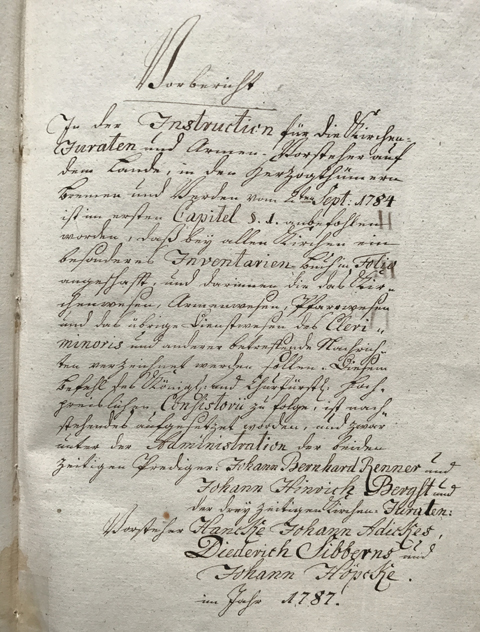 Vorbericht
In der Instruction für die Kirchen-
Juraten und Armen-Vorsteher auf
dem Lande, in den Herzogthümern
Bremen und Verden vom 2ten Sept: 1784
ist im ersten Capitel §. 1. anbefohlen
worden, daß bey allen Kirchen ein
besonderes Inventarien-Buch in Folio
angeschafft, und darinnen die das Kir-
chenwesen, Armenwesen, Pfarrwesen
und das übrige Dienstwesen des Cleri
minoris und anderer betreffende Nachrich-
ten verzeichnet werden sollen. Diesem
Befehl des Königl: und Churfürstl: Hoch-
preislichen Consistorii zu folge, ist nach-
stehendes aufgesetzet worden, und zwar
unter der Administration der beiden
zeitigen Prediger: Johann Bernhard Renner und
Johann Hinrich Bergst und
der drey zeitigen Kirchen-Juraten:
Vorsteher Hancke Johann Adickes,
Diederich Sibberns und
Johann Höpcke.
im Jahr 1787.